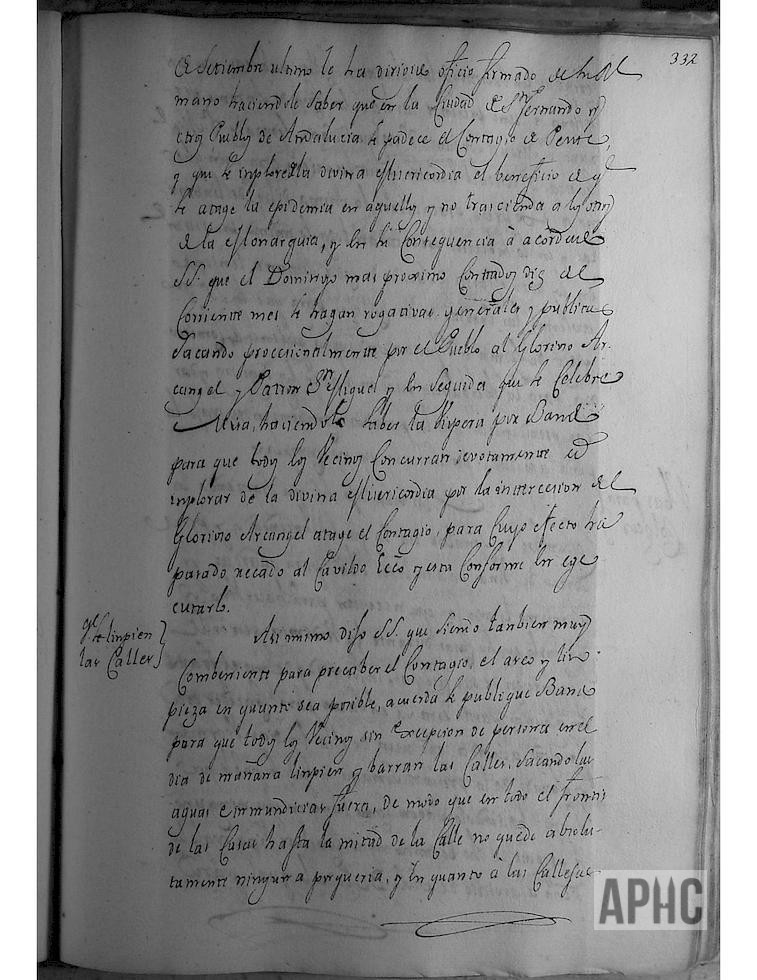 332
de Setiembre ultimo le ha dirigido oficio firmado de su
mano haciendole saber que en la Ciudad de Sn. Fernando y
otros Pueblos de Andalucia se padece el Contagio de Peste,
y que se inplore de la divina Misericordia el beneficio de qe.
se atage la epidemia en aquellos y no trascienda a los otros
de la Monarquia, y en su Consequencia à acordado
SS. que el Domingo mas proximo Contados diez del
Corriente mes se hagan rogativas generales y publicas
Sacando procesionalmente por el Pueblo al Glorioso Ar-
cangel y Patron Sn. Miguel y en seguida que se Celebre
Misa, haciendolo saber la Vispera por Bando
para que todos los Vecinos Concurran devotamente à
inplorar de la divina Misericordia por la intercesion del
Glorioso Arcangel atage el Contagio, para Cuyo efecto ha
pasado recado al Cavildo Ecco. y esta Conforme en ege
cutarlo.
qe. se linpien
las Calles
Asi mismo dijo SS. que siendo tanbien muy
Combeniente para precaber el Contagio, el aseo y lin-
pieza en quanto sea posible, acuerda se publique Bando
para que todos los Vecinos sin excepcion de persona en el
dia de mañana linpien y barran las Calles, sacando las
aguas e inmundicias fuera, de modo que en todo el frontis
de las Casas hasta la mitad de la Calle no quede absolu-
tamente ninguna porqueria, y en quanto à las Callejas
APHC